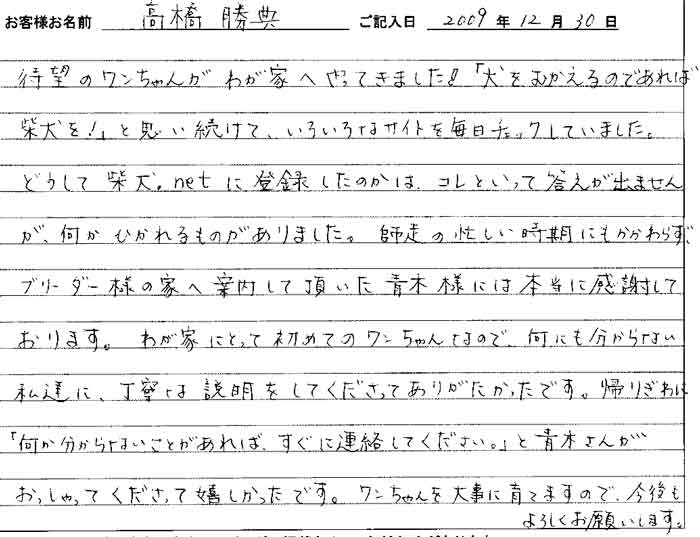 お客様お名前 高橋 勝典 ご記入日 2009 年 12 月 30 日
待望のワンちゃんがわが家へやってきました!!「犬をむかえるのであれば
柴犬を!」と思い続けて、いろいろなサイトを毎日チェックしていました。
どうして柴犬.netに登録したのかは、コレといって答えが出ません
が、何かひかれるものがありました。師走の忙しい時期にもかかわらず、
ブリーダー様の家へ案内して頂いた青木様には本当に感謝して
おります。わが家にとって初めてのワンちゃんなので、何にも分からない
私達に、丁寧な説明をしてくださってありがたかったです。帰りぎわに
「何か分からないことがあれば、すぐに連絡してください。」と青木さんが
おっしゃってくださって嬉しかったです。ワンちゃんを大事に育てますので、今後も
よろしくお願いします。